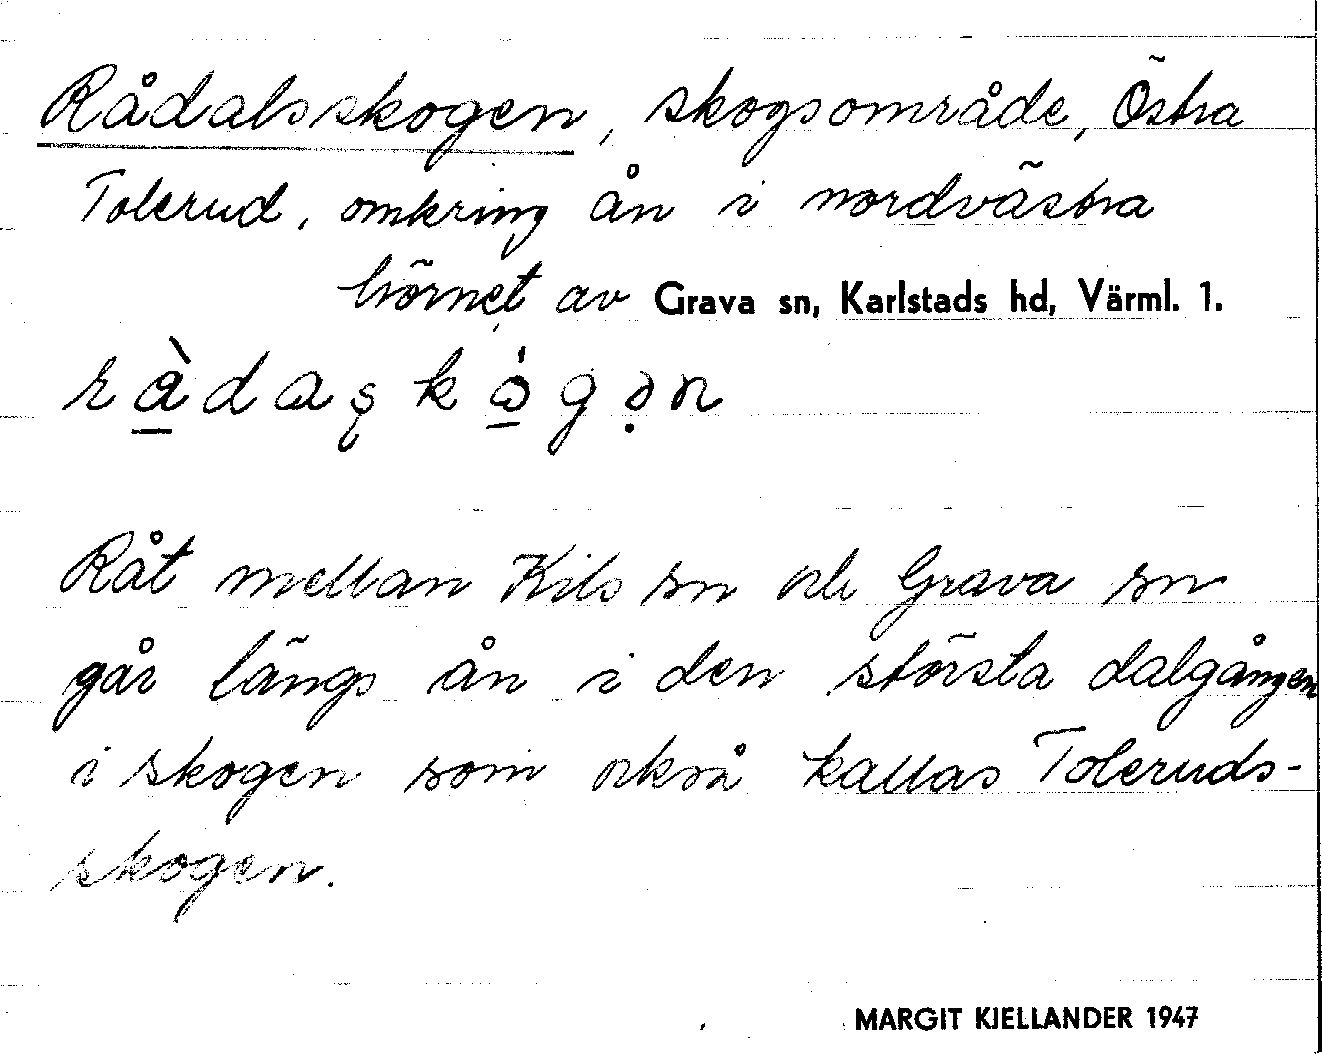 Rådalsskogen, skogsområde, Östra
Tolerud, omkring ån i nordvästra
hörnet av Grava sn, Karlstads hd, Värml. l.
Råt mellan Kils sn och Grava sn
går längs ån i den största dalgången
i skogen som också kallas Toleruds-
skogen.
MARGIT KJELLANDER 1947